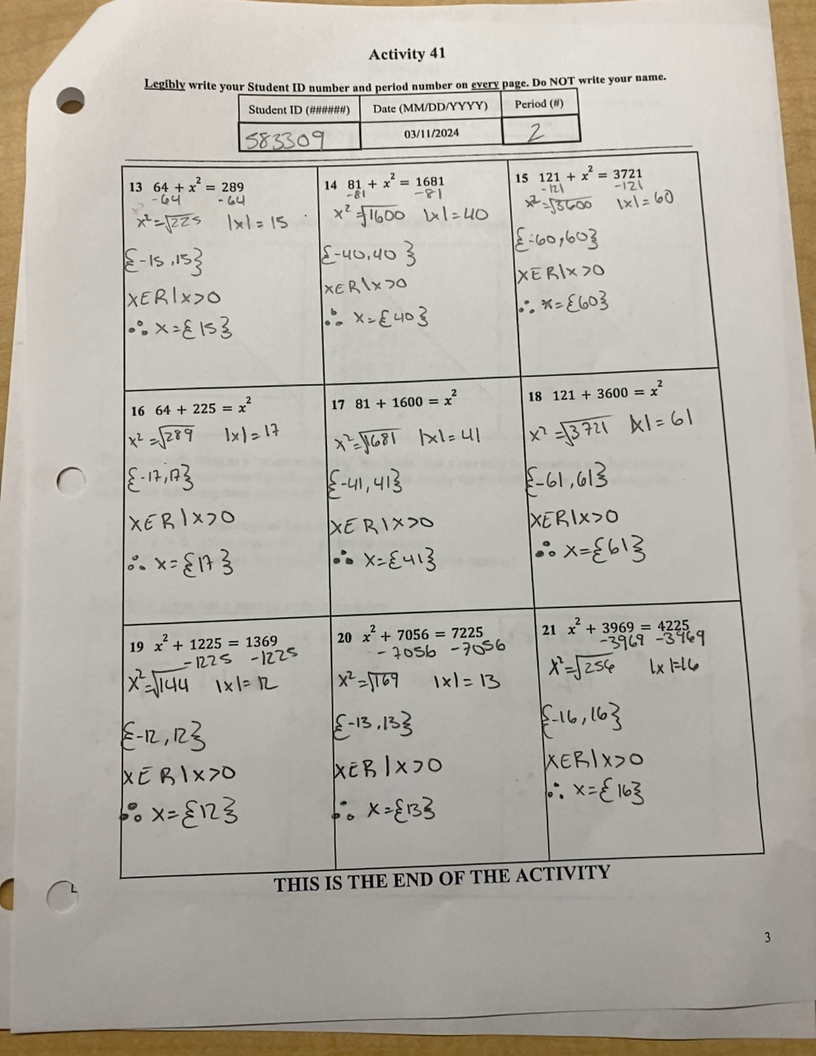 Activity 41
Legibly write your Student ID number and period number on every page. Do NOT write your name.
Student ID (######) Date (MM/DD/YYYY) Period (#)
583309 03/11/2024 2
13 64 + x² = 289
-64 -64
x²=√225 |x|= 15
{-15,15}
XER|x>0
∴ x={15}
14 81 + x² = 1681
-81 -81
x²=√1600 |x|=40
{-40,40}
XER|x>0
∴ x={40}
15 121 + x² = 3721
-121 -121
x²=√3600 |x|=60
{-60,60}
XER|x>0
∴ x={60}
16 64 + 225 = x²
x²=√289 |x|=17
{-17,17}
XER|x>0
∴ x={17}
17 81 + 1600 = x²
x²=√1681 |x|=41
{-41,41}
XER|x>0
∴ x={41}
18 121 + 3600 = x²
x²=√3721 |x|=61
{-61,61}
XER|x>0
∴ x={61}
19 x² + 1225 = 1369
-1225 -1225
x²=√144 |x|=12
{-12,12}
XER|x>0
∴ x={12}
20 x² + 7056 = 7225
-7056 -7056
x²=√169 |x|= 13
{-13,13}
XER|x>0
∴ x={13}
21 x² + 3969 = 4225
-3969 -3969
x²=√256 |x|=16
{-16,16}
XER|x>0
∴ x={16}
THIS IS THE END OF THE ACTIVITY
3